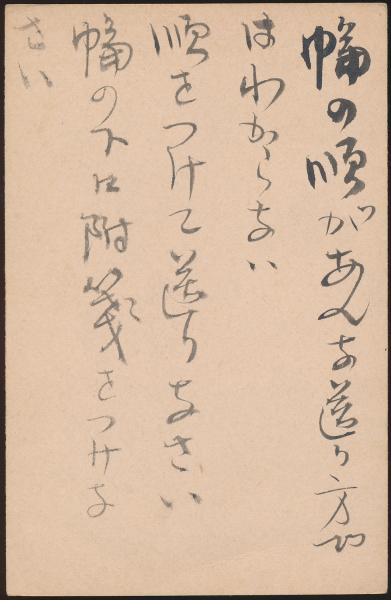 幅の順があんな送り方で
はわからない
順をつけて送りなさい
幅の下に附箋をつけな
さい